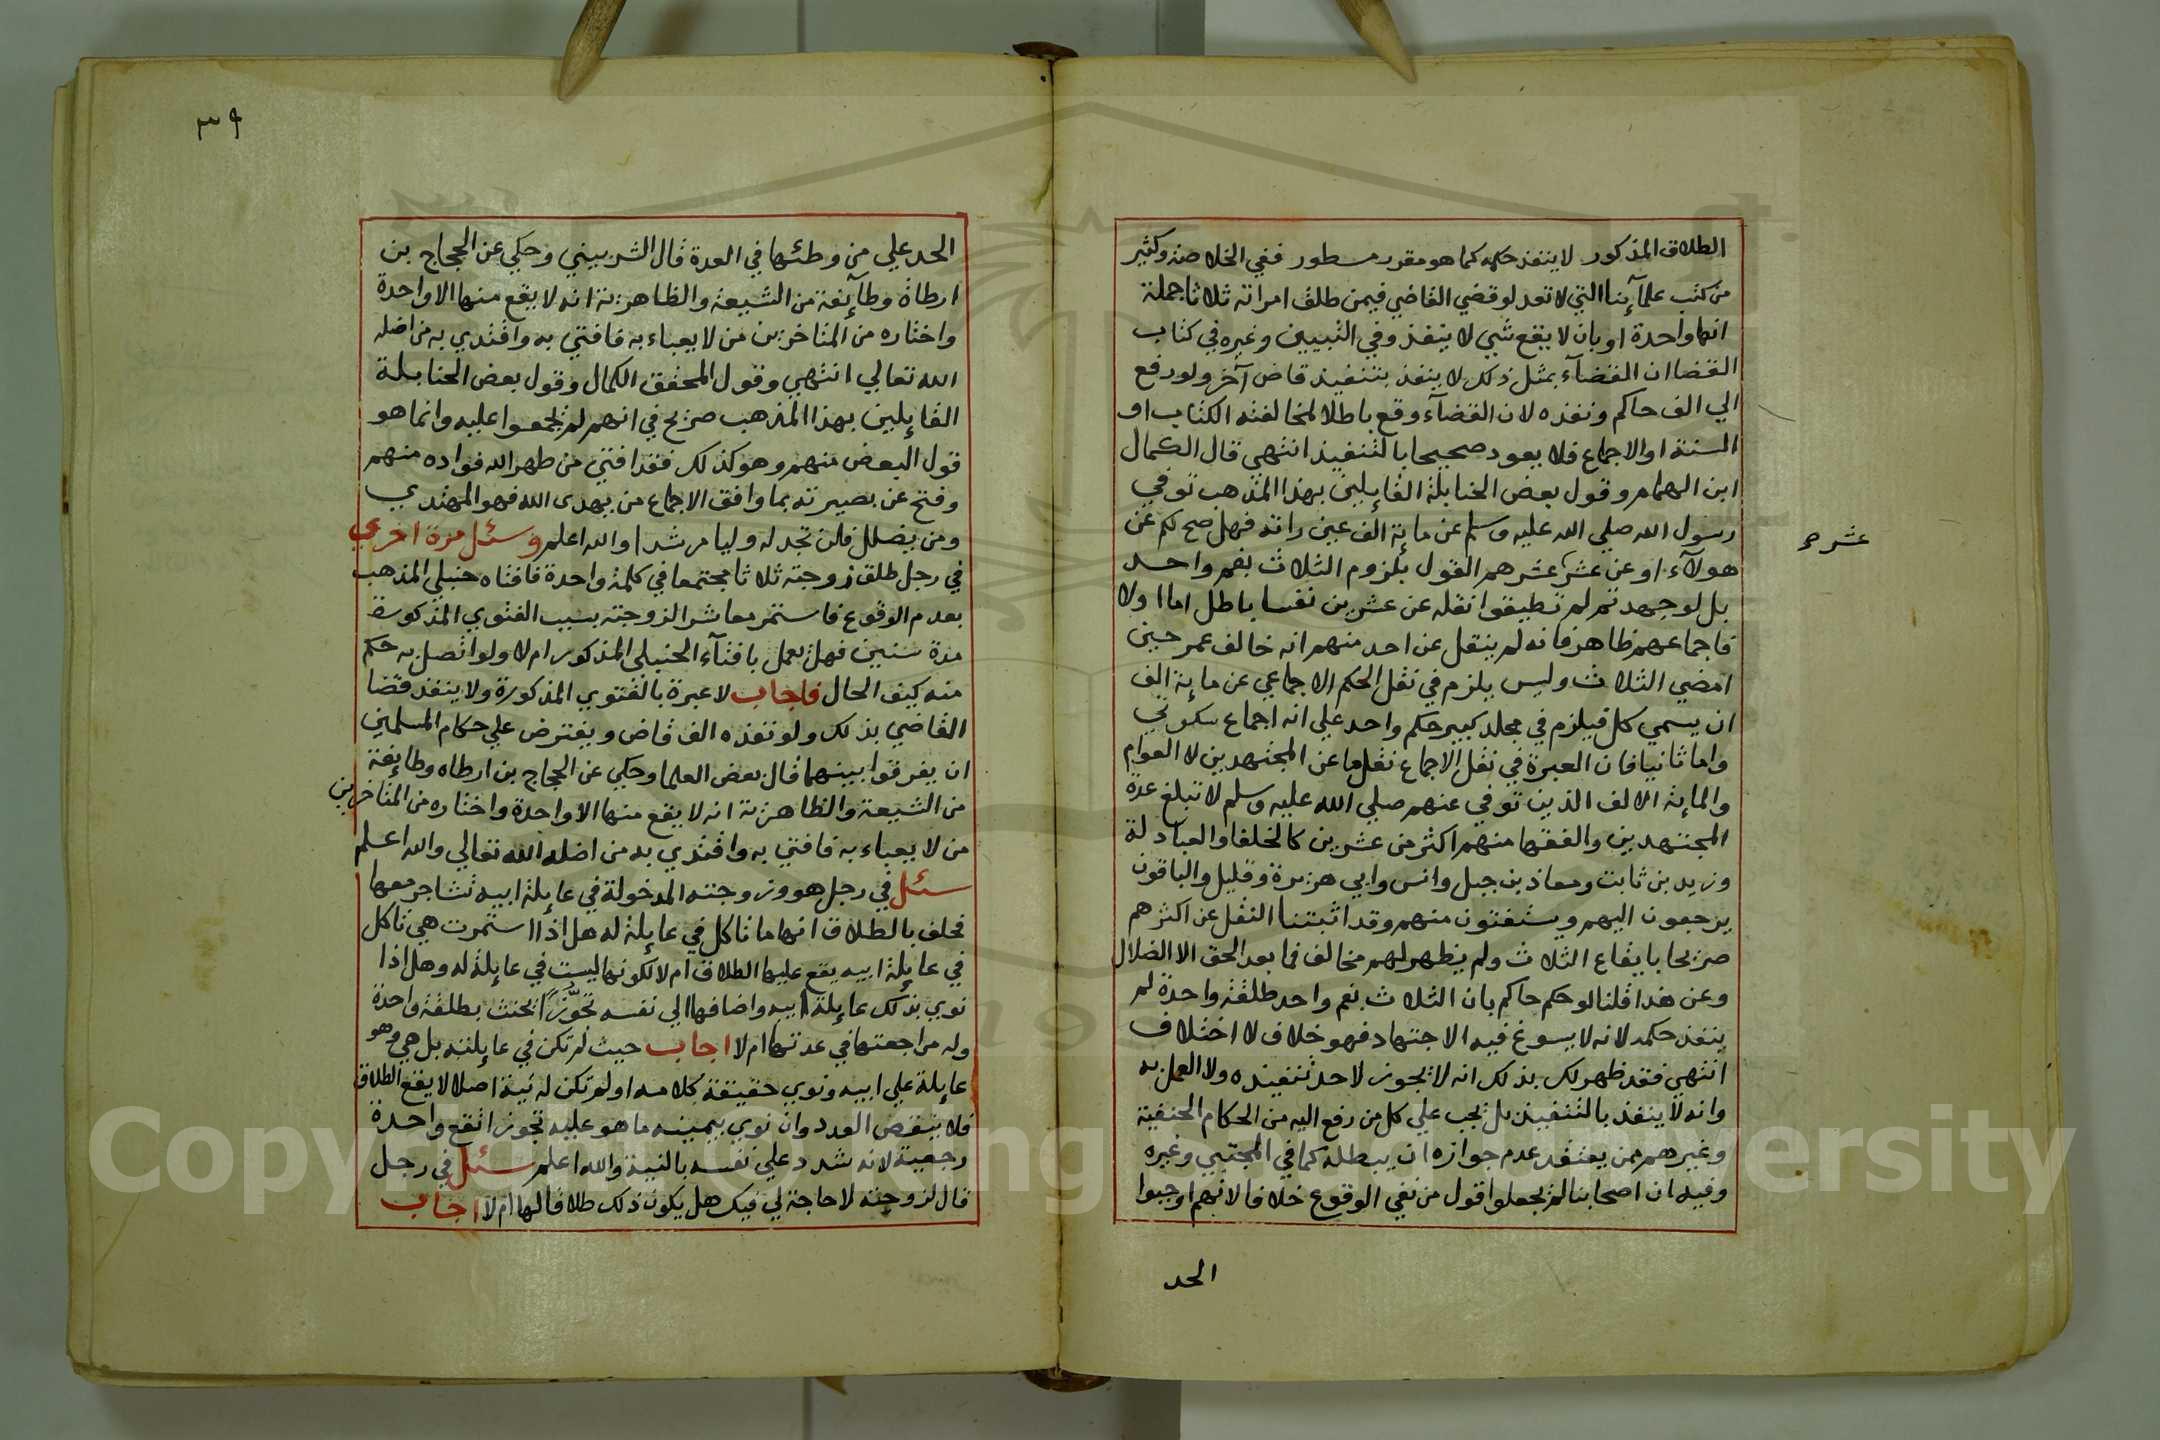 الطلاق المذكور لا ينفذ حكمه كما هو مقرر مسطور ففي الخلاصة وكثير
من كتب علمآئنا التي لا تعد لو قضي القاضي فيمن طلق امراته ثلاثا جملة
انها واحدة او بان لا يقع شي لا ينفذ وفي التبيين وغيره في كتاب
القضا ان القضآء بمثل ذلك لا ينفذ بتنفيذ قاض آخر ولو رفع
الي الف حاكم ونفذه لان القضآء وقع باطلا لمخالفته الكتاب او
السنة او الاجماع فلا يعود صحيحا بالتنفيذ انتهي قال الكمال
ابن الهمام وقول بعض الحنابلة القايلين بهذا المذهب توفي
رسول الله صلي الله عليه وسلم عن ماية الف عين راته فهل صح لكم عن
هولآء او عن عشر عشر عشرهم القول بلزوم الثلاث بفم واحد
بل لو جهدتم لم تطيقوا نقله عن عشرين نفسا باطل اما اولا
فاجماعهم ظاهر فانه لم ينقل عن احد منهم انه خالف عمر حين
امضي الثلاث وليس يلزم في نقل الحكم الاجماعي عن ماية الف
ان يسمي كل فيلزم في مجلد كبير حكم واحد علي انه اجماع سكوتي
واما ثانيا فان العبرة في نقل الاجماع نقل ما عن المجتهدين لا العوام
والماية الالف الذين توفي عنهم صلي الله عليه وسلم لا تبلغ عدة
المجتهدين والفقها منهم اكثر من عشرين كالخلفا والعبادلة
وزيد بن ثابت ومعاذ بن جبل وانس وابي هريرة وقليل والباقون
يرجعون اليهم ويستفتون منهم وقد اثبتنا النقل عن اكثرهم
صريحا بايقاع الثلاث ولم يظهر لهم مخالف فما بعد الحق الا الضلال
وعن هذا قلنا لو حكم حاكم بان الثلاث بفم واحد طلقة واحدة لم
ينفذ حكمه لانه لا يسوغ فيه الاجتهاد فهو خلاف لا اختلاف
انتهي فقد ظهر لك بذلك انه لا يجوز لاحد تنفيذه ولا العمل به
وانه لا ينفذ بالتنفيذ بل يجب علي كل من رفع اليه من الحكام الحنفية
وغيرهم ممن يعتقد عدم جوازه ان يبطله كما في المجتبي وغيره
وفيه ان اصحابنا لم يجعلوا قول من نفي الوقوع خلافا لانهم اوجبوا
الحد
عشر صح
٣٩
الحد علي من وطئها في العدة قال الشربيني وحكي عن الحجاج بن
ارطاة وطآيفة من الشيعة والظاهرية انه لا يقع منها الا واحدة
واختاره من المتاخرين من لا يعباء به فافتي به واقتدي به من اضله
الله تعالي انتهي وقول المحقق الكمال وقول بعض الحنابلة
القايلين بهذا المذهب صريح في انهم لم يجمعوا عليه وانما هو
قول البعض منهم وهو كذلك فقد افتي من طهر الله فواده منهم
وفتح عن بصيرته بما وافق الاجماع من يهدي الله فهو المهتدي
ومن يضلل فلن تجد له وليا مرشدا والله اعلم وسئل مرة اخري
في رجل طلق زوجته ثلاثا مجتمعا في كلمة واحدة فافتاه حنبلي المذهب
بعدم الوقوع فاستمر معاشرا لزوجته بسبب الفتوي المذكورة
مدة سنين فهل يعمل بافتآء الحنبلي المذكور ام لا ولو اتصل به حكم
منه كيف الحال فاجاب لا عبرة بالفتوي المذكورة ولا ينفذ قضا
القاضي بذلك ولو نفذه الف قاض ويفترض علي حكام المسلمين
ان يفرقوا بينهما قال بعض العلما وحكي عن الحجاج بن ارطاه وطايفة
من الشيعة والظاهرية انه لا يقع منها الا واحدة واختاره من المتاخرين
من لا يعباء به فافتي به واقتدي به من اضله الله تعالي والله اعلم
سئل في رجل هو وزوجته المدخولة في عايلة ابيه تشاجر معها
فحلف بالطلاق انها ما تاكل في عايلة له هل اذا استمرت هي تاكل
في عايلة ابيه يقع عليها الطلاق ام لا لكونها ليست في عايلة له وهل اذا
نوي بذلك عايلة ابيه واضافها الي نفسه تجوّزاً يحنث بطلقة واحدة
وله مراجعتها في عدتها ام لا اجاب حيث لم تكن في عايلته بل هي وهو
عايلة علي ابيه ونوي حقيقة كلامه او لم تكن له نية اصلا لا يقع الطلاق
فلا ينقض العدد وان نوي بيمينه ما هو عليه تجوزا تقع واحدة
رجعية لانه شدد علي نفسه بالنية والله اعلم سئل في رجل
قال لزوجته لا حاجة لي فيك هل يكون ذلك طلاقا لها ام لا اجاب